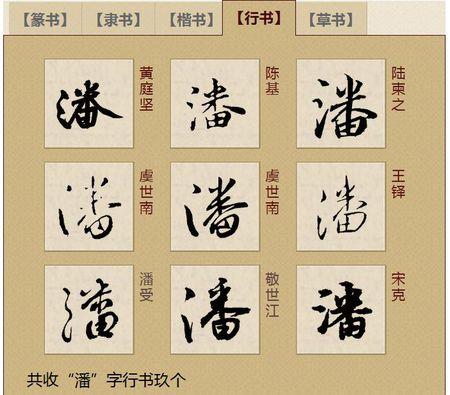 【篆书】【隶书】【楷书】【行书】【草书】
潘 黄庭坚 潘 陈基 潘 陆柬之
潘 虞世南 潘 虞世南 潘 王铎
潘 潘受 潘 敬世江 潘 宋克
共收“潘”字行书玖个